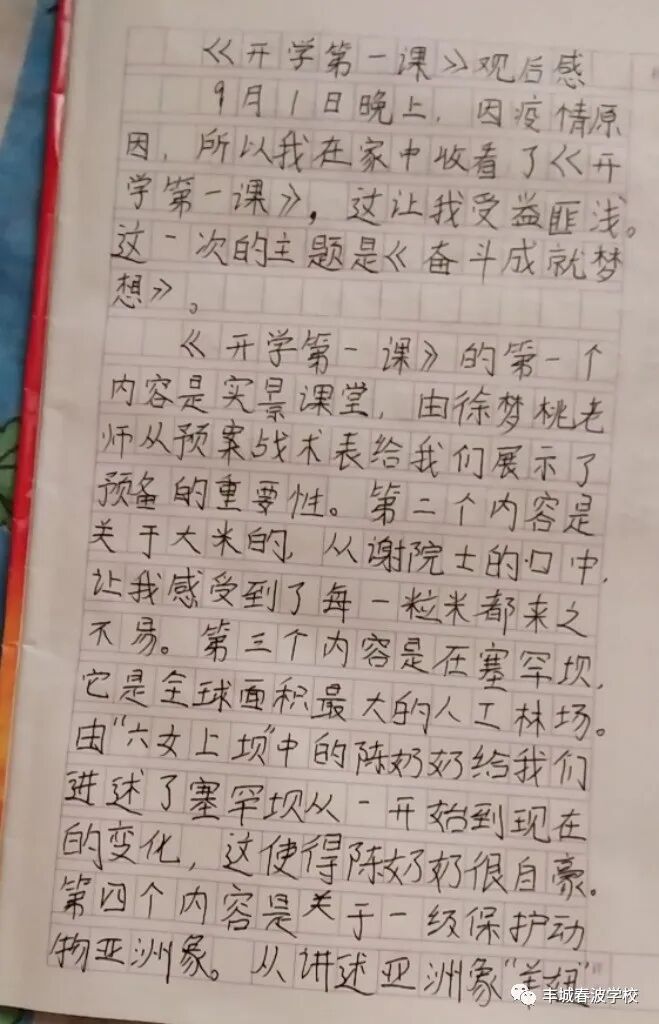 《开学第一课》观后感
9月1日晚上，因疫情原
因，所以我在家中收看了《开
学第一课》，这让我受益匪浅。
这一次的主题是《奋斗成就梦
想》。
《开学第一课》的第一个
内容是实景课堂，由徐梦桃老
师从预案战术表给我们展示了
预备的重要性。第二个内容是
关于大米的，从谢院士的口中，
让我感受到了每一粒米都来之
不易。第三个内容是在塞罕坝，
它是全球面积最大的人工林场。
由“六女上坝”中的陈奶奶给我们
进述了塞罕坝从一开始到现在
的变化，这使得陈奶奶很自豪。
第四个内容是关于一级保护动
物亚洲象。从讲述亚洲象“羊妞”
丰城春波学校